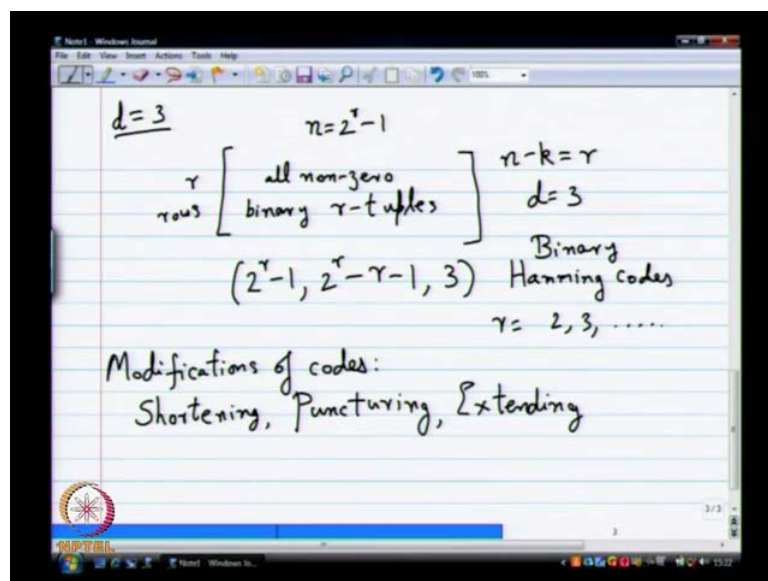 Note1 - Windows Journal
File Edit View Insert Actions Tools Help
100%
d=3
n=2^r-1
r rows [ all non-zero binary r-tuples ]
n-k=r
d=3
(2^r-1, 2^r-r-1, 3) Binary Hamming codes
r= 2, 3, .....
Modifications of codes:
Shortening, Puncturing, Extending
3/3
3
NPTEL
Note1 - Windows Jo...
15:22